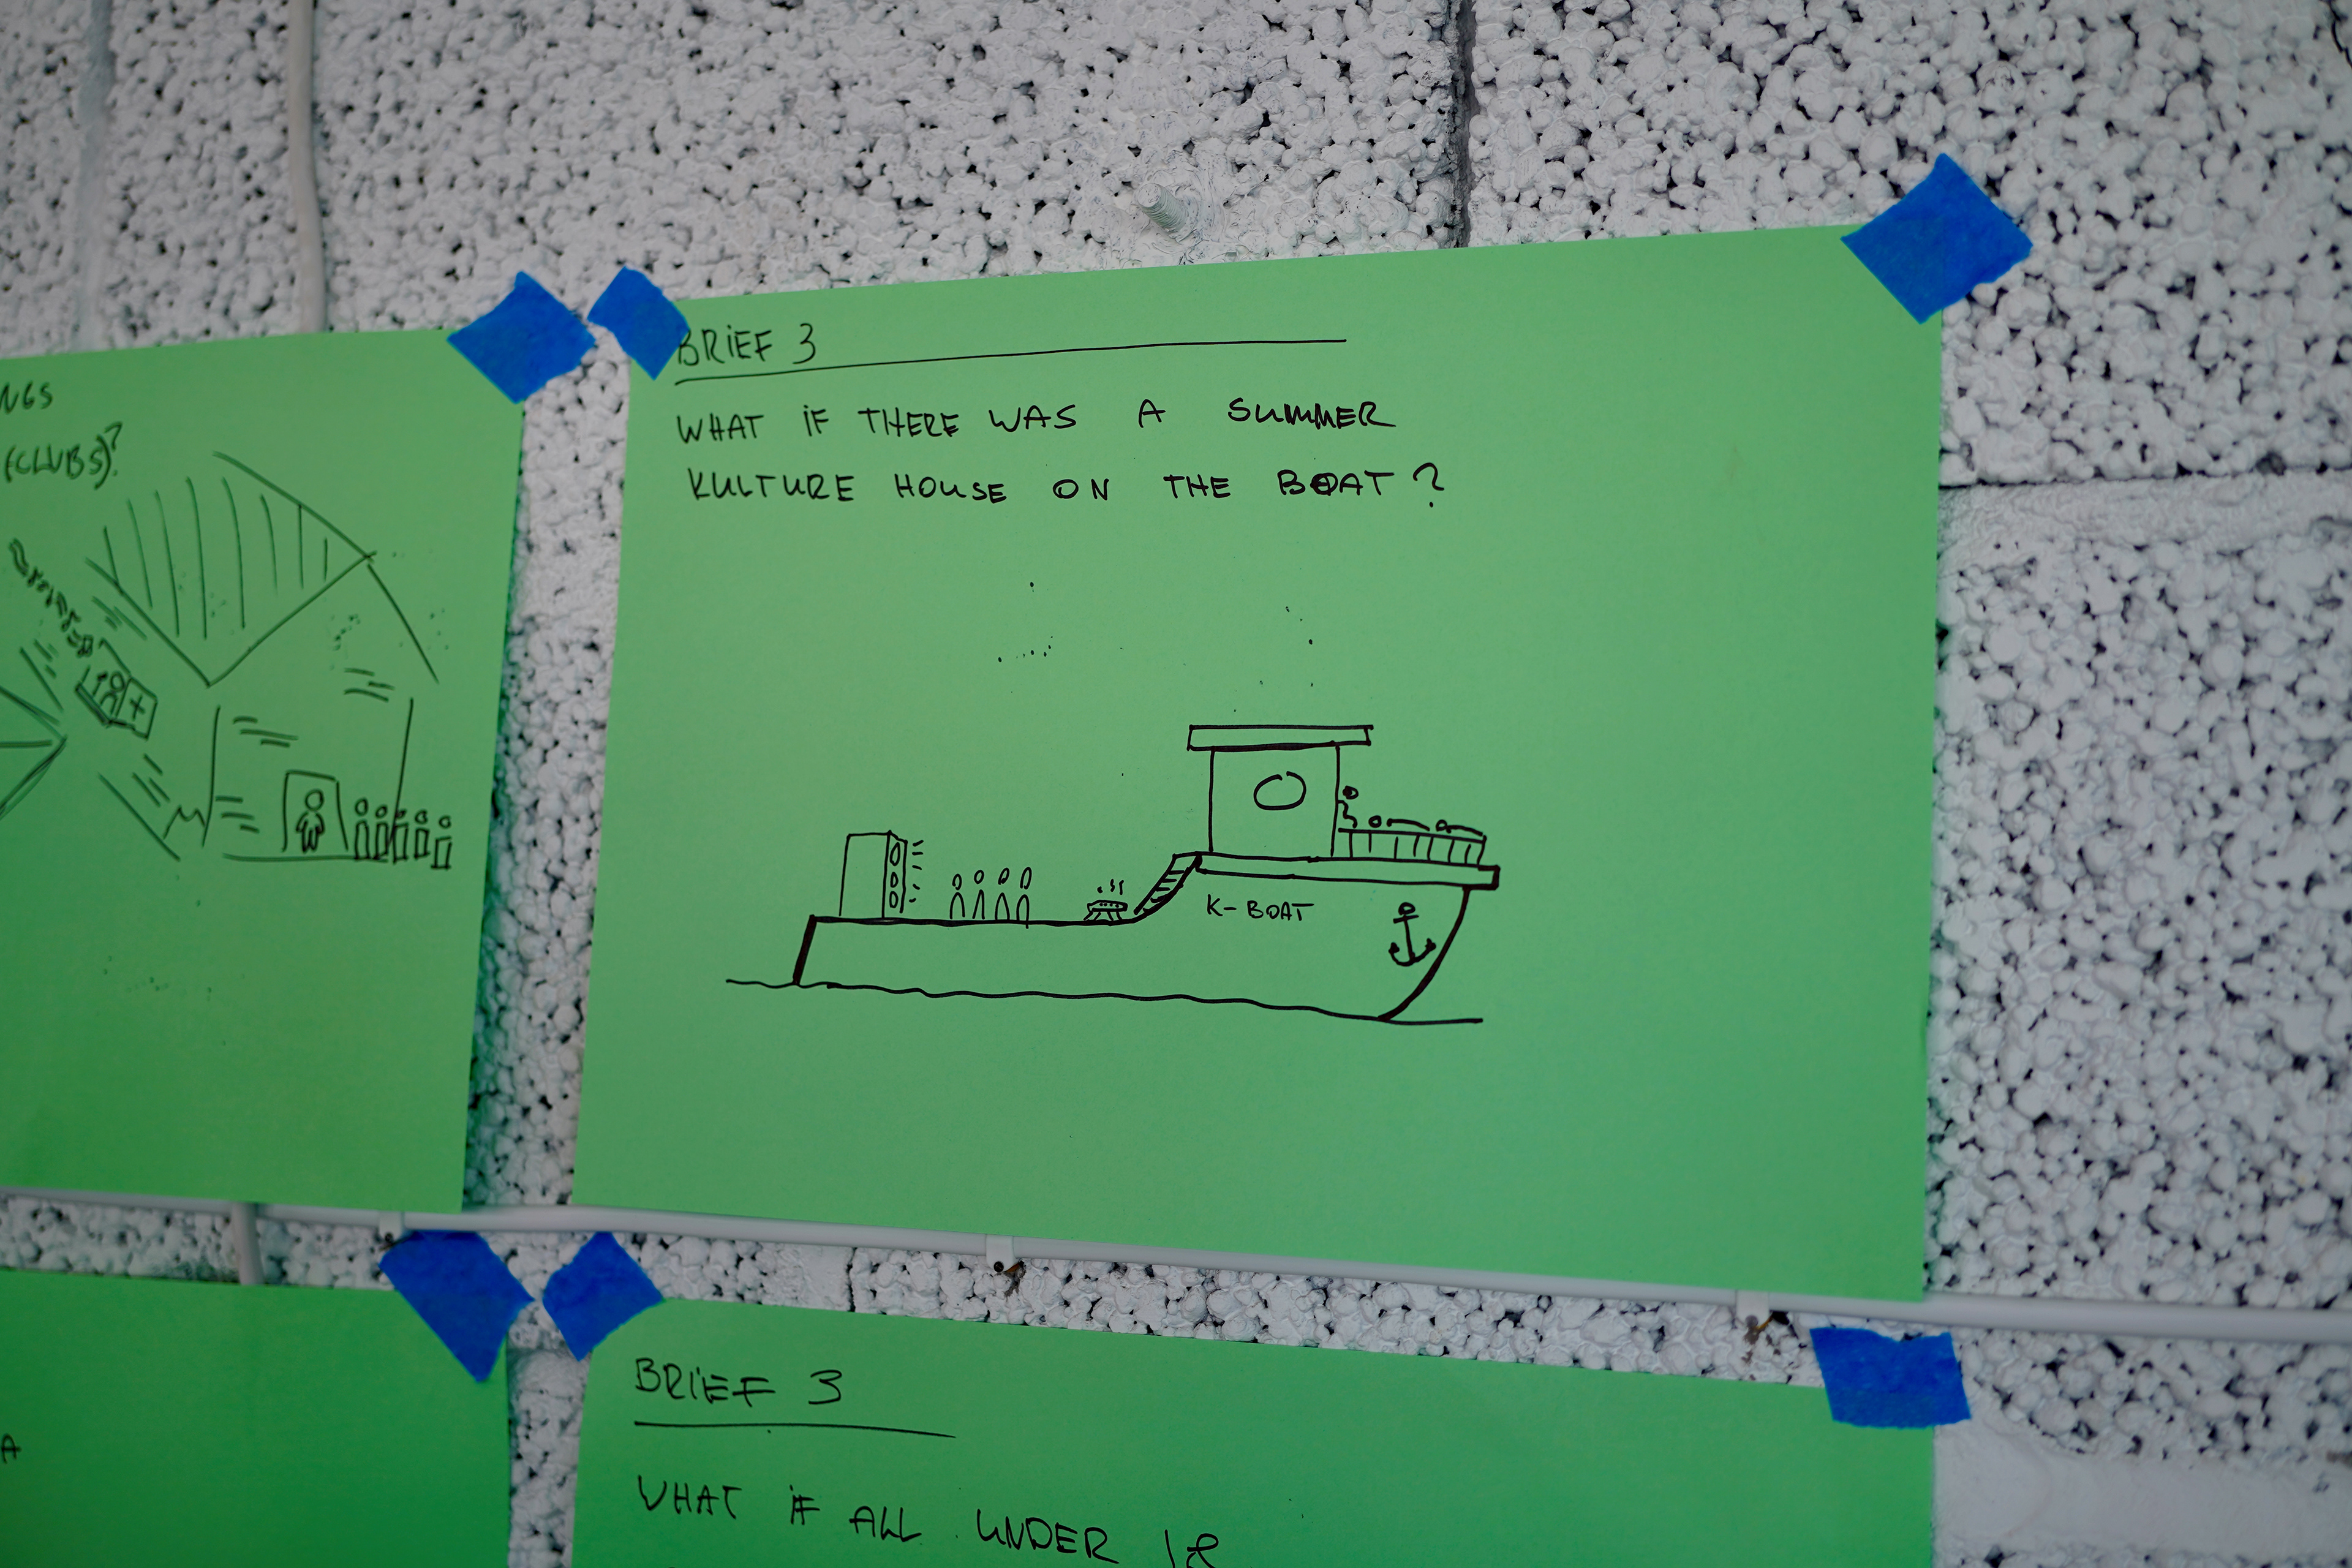 BRIEF 3
WHAT IF THERE WAS A SUMMER
KULTURE HOUSE ON THE BOAT?
K-BOAT
(CLUBS)?
BRIEF 3
WHAT IF ALL UNDER 18
A